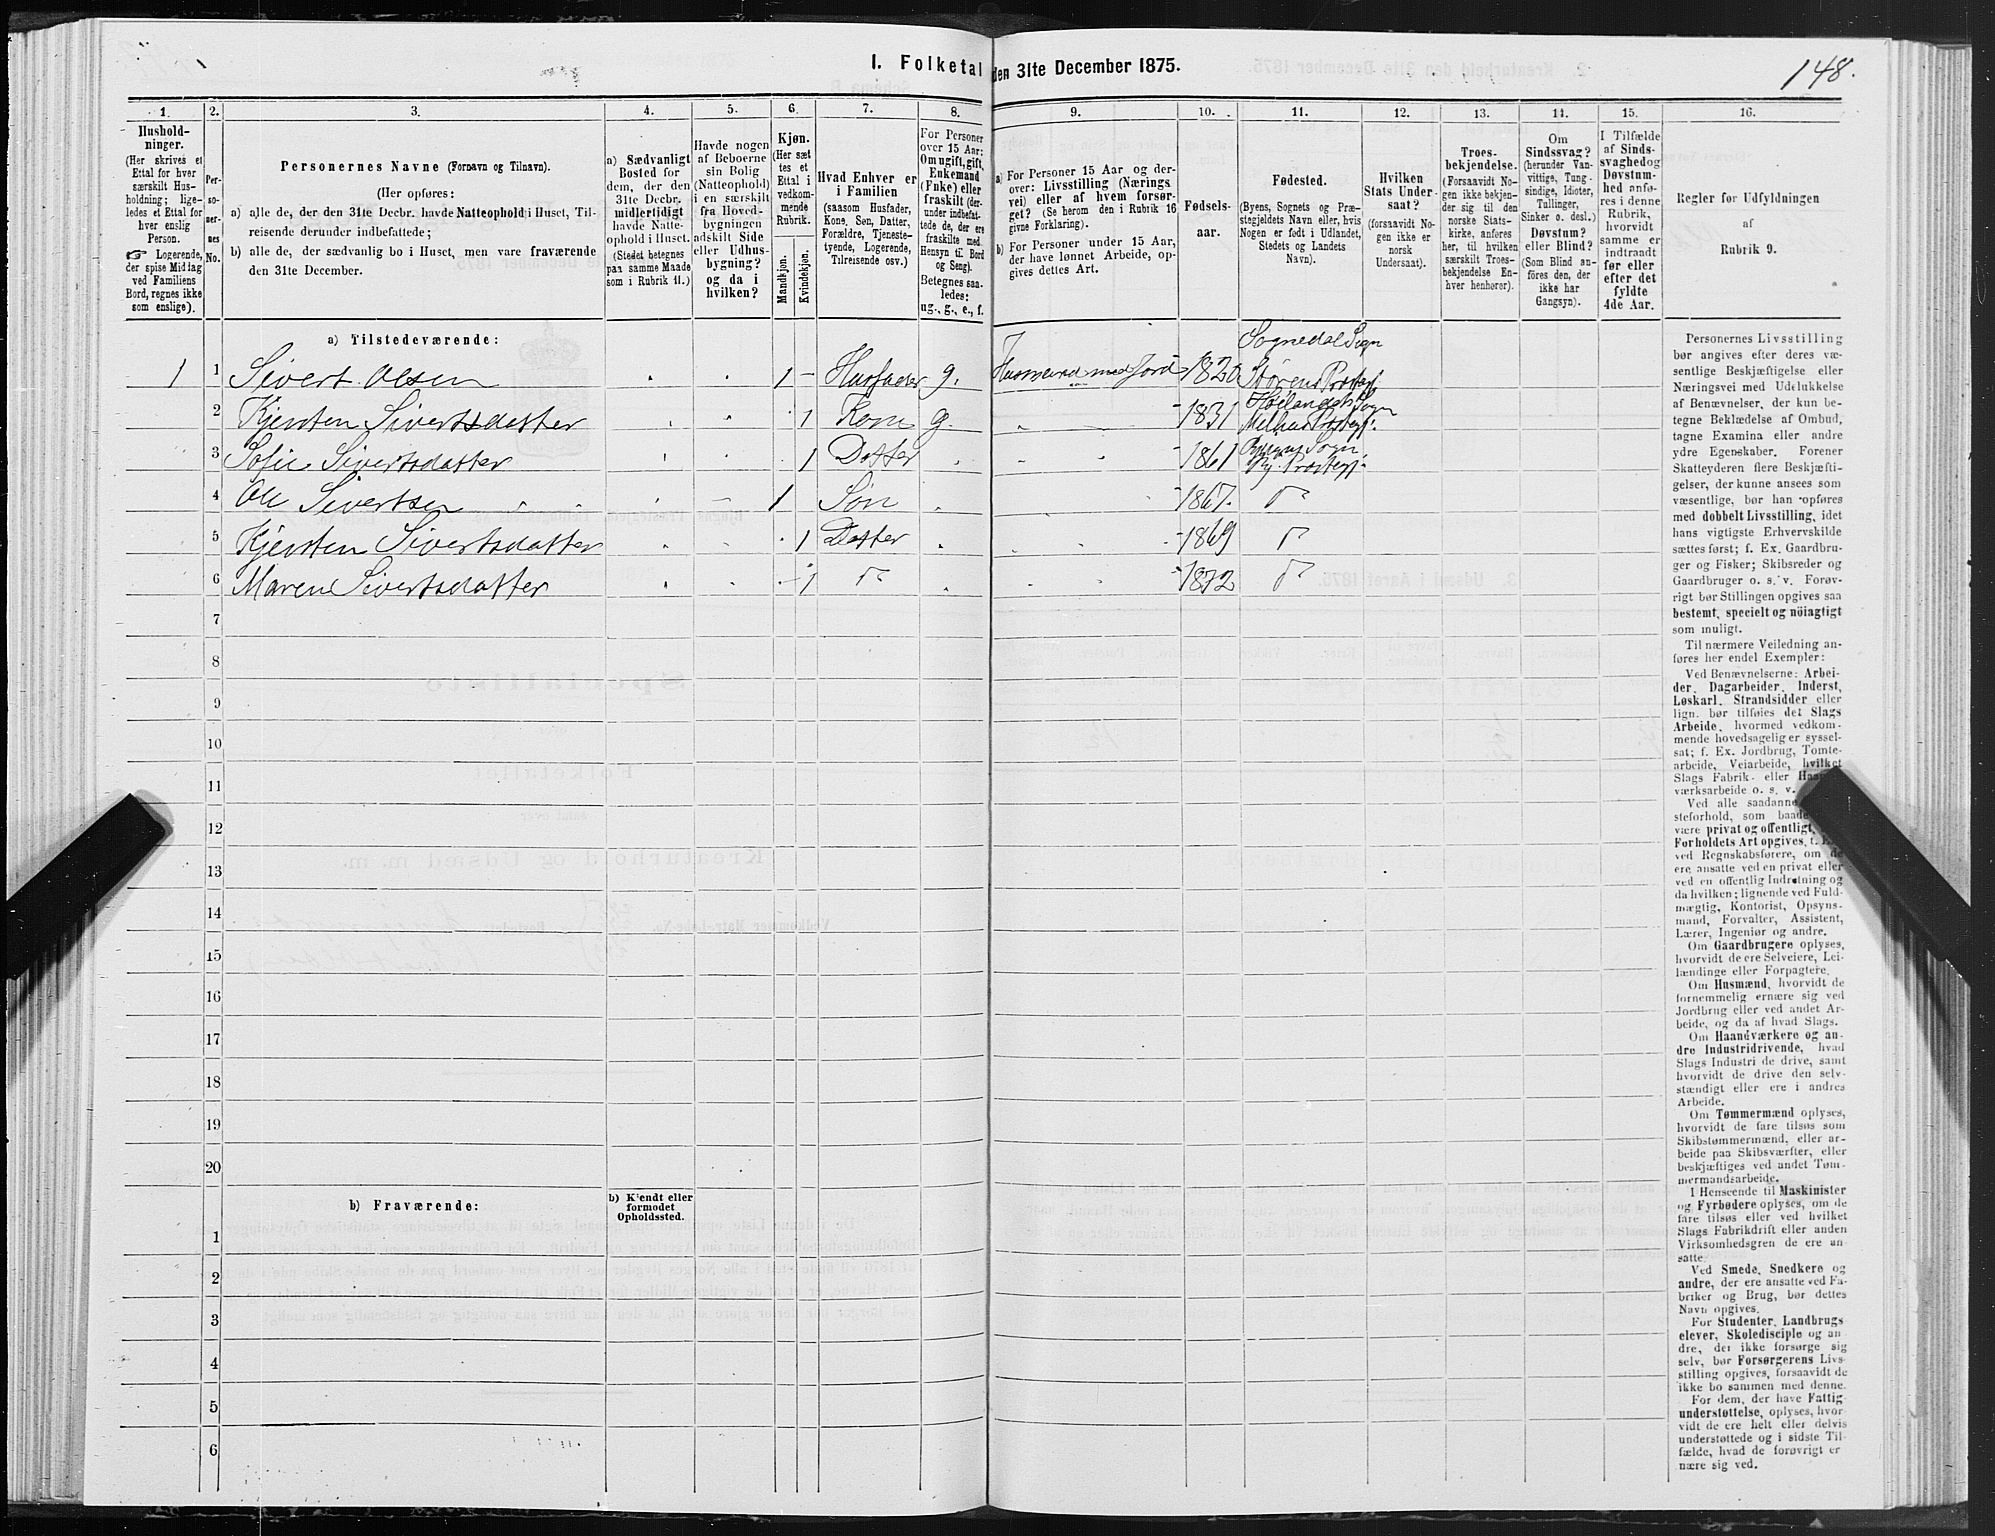 I. Folketal den 31te December 1875.
148.
1.
Hushold-
ninger.
(Her skrives et
Ettal for hver
særskilt Hus-
holdning; lige-
ledes et Ettal for
hver enslig
Person.
☞ Logerende,
der spise Middag
ved Familiens
Bord, regnes ikke
som enslige).
2.
Per-
so-
ner-
nes
No.
3.
Personernes Navne (Fornavn og Tilnavn).
(Her opføres:
a) alle de, der den 31te Decbr. havde Natteophold i Huset, Til-
reisende derunder indbefattede;
b) alle de, der sædvanlig bo i Huset, men vare fraværende
den 31te December.
4.
a) Sædvanligt
Bosted for
dem, der den
31te Decbr.
midlertidigt
havde Natte-
ophold i Huset.
(Stedet betegnes
paa samme Maade
som i Rubrik 11.)
5.
Havde nogen
af Beboerne
sin Bolig
(Natteophold)
i en særskilt
fra Hoved-
bygningen
adskilt Side
eller Udhus-
bygning?
og da i
hvilken?
6.
Kjøn.
(Her sæt
tes et
Ettal i
vedkom-
mende
Rubrik.
Mandkjøn.
Kvindekjøn.
7.
Hvad Enhver er
i Familien
(saasom Husfader,
Kone, Søn, Datter,
Forældre, Tjeneste-
tyende, Logerende,
Tilreisende osv.)
8.
For Personer
over 15 Aar:
Om ugift, gift,
Enkemand
(Enke) eller
fraskilt (der-
under indbefat-
tede de, der ere
fraskilte med
Hensyn til Bord
og Seng).
Betegnes saa-
ledes:
ug., g., e., f.
9.
a) For Personer 15 Aar og der-
over: Livsstilling (Nærings
vei) eller af hvem forsør-
get? (Se herom den i Rubrik 16
givne Forklaring).
b) For Personer under 15 Aar,
der have lønnet Arbeide, op-
gives dettes Art.
10.
Fødsels-
aar.
11.
Fødested.
(Byens, Sognets og Præ-
stegjeldets Navn eller, hvis
Nogen er født i Udlandet,
Stedets og Landets
Navn).
12.
Hvilken
Stats Under-
saat?
(forsaavidt No-
gen ikke er
norsk
Undersaat).
13.
Troes-
bekjendelse.
(Forsaavidt No-
gen ikke bekjen-
der sig til den
norske Stats-
kirke, anføres
her, til hvilken
særskilt Troes-
bekjendelse En-
hver henhører).
14.
Om
Sindssvag?
(herunder Van-
vittige, Tung-
sindige, Idioter,
Tullinger,
Sinker o. desl.)
Døvstum?
eller Blind?
(Som Blind an-
føres den, der
ikke har
Gangsyn).
15.
I Tilfælde
af Sinds-
svaghed og
Døvstum-
hed anfø-
res i denne
Rubrik,
hvorvidt
samme er
indtraadt
før eller
efter det
fyldte
4de Aar.
16.
Regler før Udfyldningen
af
Rubrik 9.
a) Tilstedeværende:
1 1 Sivert Olsen 1 Husfader g. Husmand med Jord 1820 Sognedal Sogn
Størens Præstegj.
2 Kjersten Sivertsdatter 1 Kone g. 1831 Høilandets Sogn
Melhus Præstegj.
3 Sofie Sivertsdatter 1 Datter 1861 Sogn
Præstegj.
4 Ole Sivertsen 1 Søn 1867.
5 Kjersten Sivertsdatter 1 Datter 1869
6 Maren Sivertsdatter 1 1872
7
8
9
10
11
12
13
14
15
16
17
18
19
20
b) Fraværende:
b) Kjendt eller
formodet
Opholdssted.
1
2
3
4
5
6
Personernes Livsstilling
bør angives efter deres væ-
sentlige Beskjæftigelse eller
Næringsvei med Udelukkelse
af Benævnelser, der kun be-
tegne Beklædelse af Ombud,
tagne Examina eller andre
ydre Egenskaber. Forener
Skatteyderen flere Beskjæfti-
gelser, der kunne ansees som
væsentlige, bør han opføres
med dobbelt Livsstilling, idet
hans vigtigste Erhvervskilde
sættes først; f. Ex. Gaardbru-
ger og Fisker; Skibsreder og
Gaardbruger o. s. v. Forøv-
rigt bør Stillingen opgives saa
bestemt, specielt og nöiagtigt
som muligt.
Til nærmere Veiledning an-
føres her endel Exempler:
Ved Benævnelserne: Arbei-
der, Dagarbeider, Inderst,
Løskarl, Strandsidder eller
lign. bør tilføies det Slags
Arbeide, hvormed vedkom-
mende hovedsagelig er syssel-
sat; f. Ex. Jordbrug, Tomte-
arbeide, Veiarbeide, hvilket
Slags Fabrik- eller
værksarbeide o. s. v.
Ved alle saadanne
steforhold, som baade
være privat og offentligt,
Forholdets Art opgives,
ved Regnskabsførere, om de
ere ansatte ved en privat eller
ved en offentlig Indretning og
da hvilken; lignende ved Fuld-
mægtig, Kontorist, Opsyns-
mand, Forvalter, Assistent,
Lærer, Ingeniør og andre.
Om Gaardbrugere oplyses,
hvorvidt de ere Selveiere, Lei-
lændinge eller Forpagtere.
Om Husmænd, hvorvidt de
fornemmelig ernære sig ved
Jordbrug eller ved andet Ar-
beide, og da af hvad Slags.
Om Haandværkere og an-
dre Industridrivende, hvad
Slags Industri de drive, samt
hvorvidt de drive den selv-
stændigt eller ere i andres
Arbeide.
Om Tømmermænd oplyses,
hvorvidt de fare tilsøs som
Skibstømmermænd, eller ar-
beide paa Skibsværfter, eller
beskjæftiges ved andet Tøm-
mermandsarbeide.
I Henseende til Maskinister
og Fyrbødere oplyses, om de
fare tilsøs eller ved hvilket
Slags Fabrikdrift eller anden
Virksomhedsgren de ere an-
satte.
Ved Smede, Snedkere og
andre, der ere ansatte ved Fa-
briker og Brug, bør dettes
Navn opgives.
For Studenter, Landbrugs
elever, Skoledisciple og an
dre, der ikke forsørge sig
selv, bør Forsørgerens Livs-
stilling opgives, forsaavidt de
ikke bo sammen med denne.
For dem, der have Fattig
understøttelse, oplyses, hvor-
vidt de ere helt eller delvis
understøttede og i sidste Til-
fælde, hvad de forøvrigt er
nære sig ved.